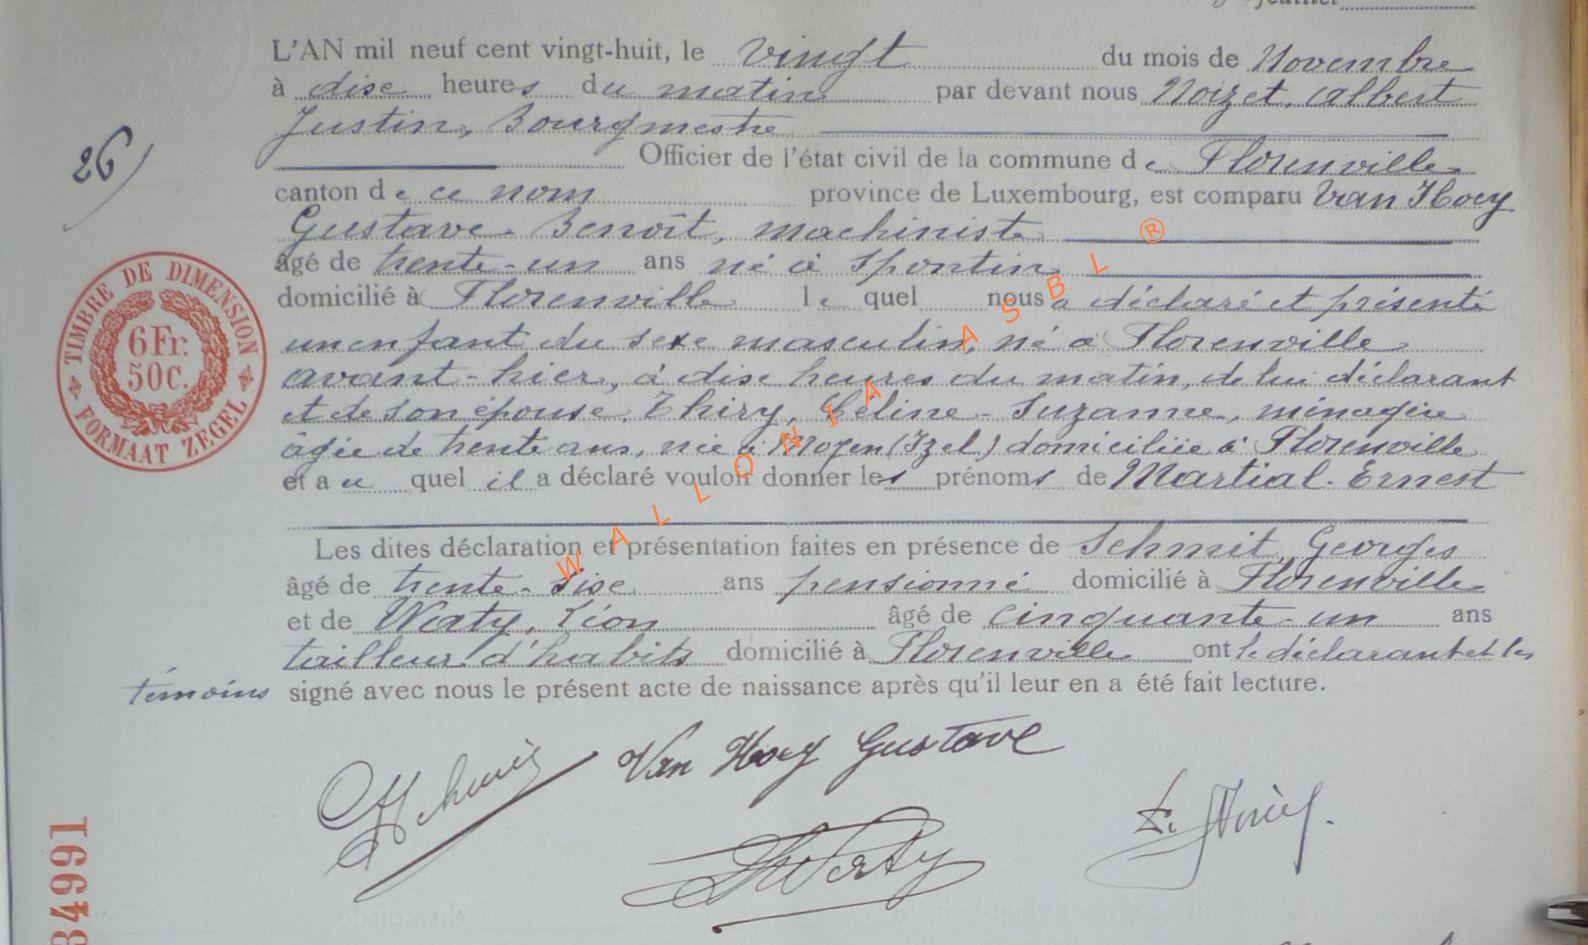 L'AN mil neuf cent vingt-huit, le vingt du mois de Novembre
à dise heures du matin par devant nous Noizet, Albert
Justin, Bourgmestre
Officier de l'état civil de la commune de Florenville
26)
canton de ce nom province de Luxembourg, est comparu Van Hoey
Gustave Benoît, machiniste
âgé de trente-un ans né à Spontin
domicilié à Florenville lequel nous a déclaré et présenté
un enfant du sexe masculin, né à Florenville
avant-hier, à dise heures du matin, de lui déclarant
et de son épouse, Thiry, Céline-Suzanne, ménagère
âgée de trente ans, née à Moyen (Izel) domiciliée à Florenville
et au quel il a déclaré vouloir donner les prénoms de Martial-Ernest
Les dites déclaration et présentation faites en présence de Schmit, Georges
âgé de trente-sise ans pensionné domicilié à Florenville
et de Werty, Léon âgé de cinquante-un ans
tailleur d'habits domicilié à Florenville ont le déclarant et les
témoins signé avec nous le présent acte de naissance après qu'il leur en a été fait lecture.
Van Hoey Gustave
TIMBRE DE DIMENSION
6 Fr.
50 C.
FORMAAT ZEGEL
84991
WALLONIA ASBL ®